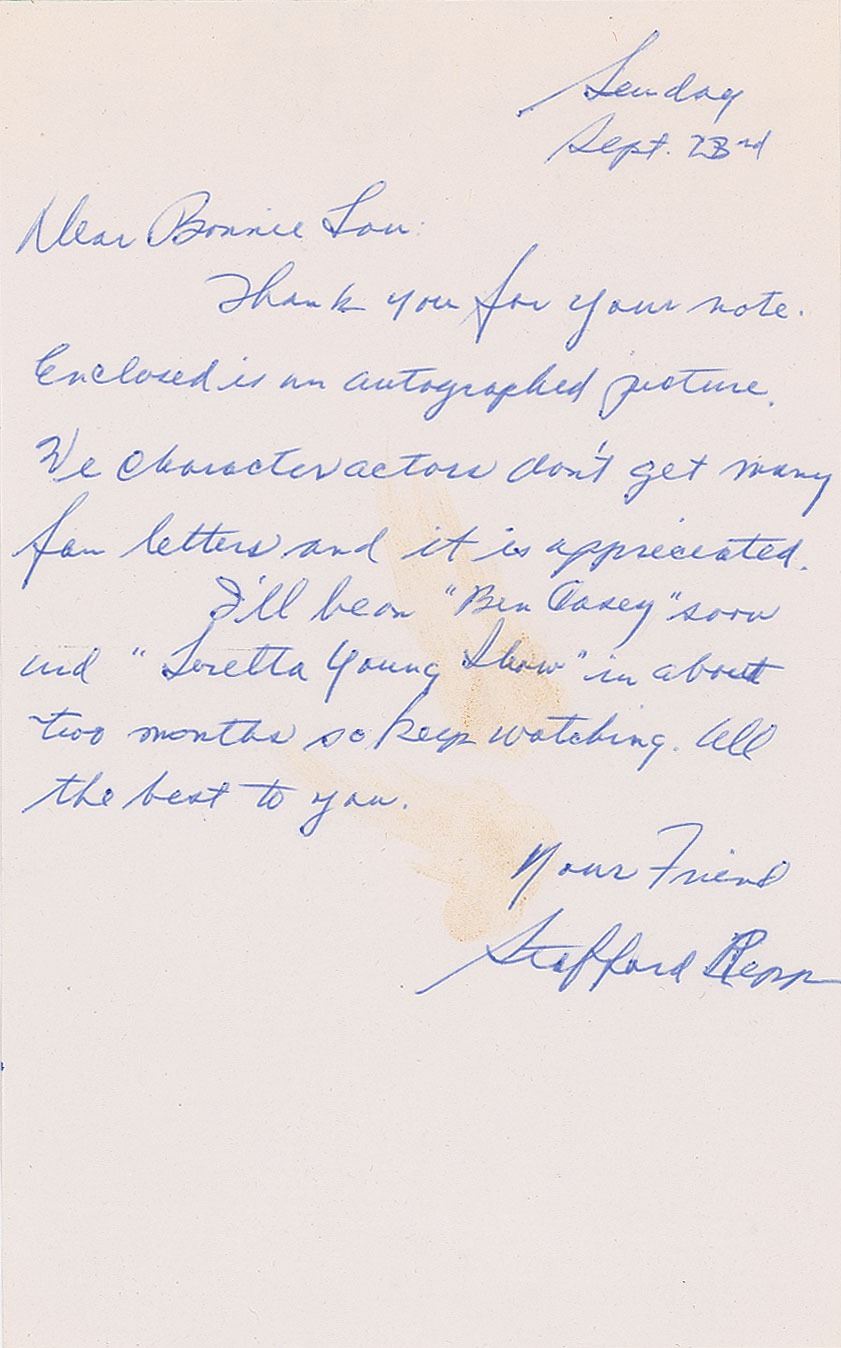 Sunday
Sept. 23rd
Dear Bonnie Lou:
Thank you for your note.
Enclosed is an autographed picture.
We character actors don't get many
fan letters and it is appreciated.
I'll be on "Ben Casey" soon
and "Loretta Young Show" in about
two months so keep watching. All
the best to you.
Your Friend
Stafford Repp